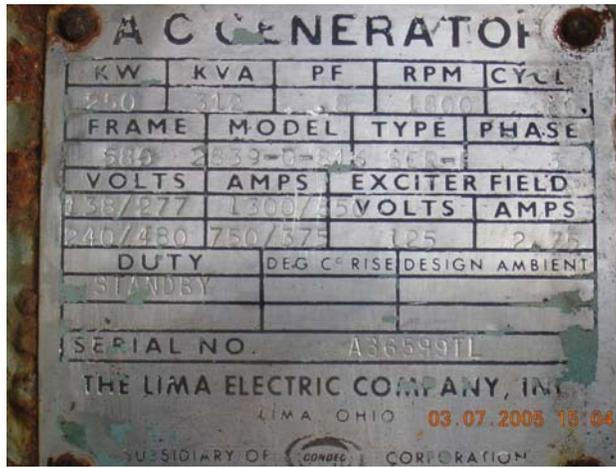 AC GENERATOR
KW KVA PF RPM CYCL
250 312 .8 1800
FRAME MODEL TYPE PHASE
680 3
VOLTS AMPS EXCITER FIELD
138/277 1300/650 VOLTS AMPS
240/480 750/375 125 2.75
DUTY DEG C° RISE DESIGN AMBIENT
STANDBY
SERIAL NO. A36599TL
THE LIMA ELECTRIC COMPANY, INC
LIMA, OHIO 03.07.2005 15:04
SUBSIDIARY OF CONDEC CORPORATION